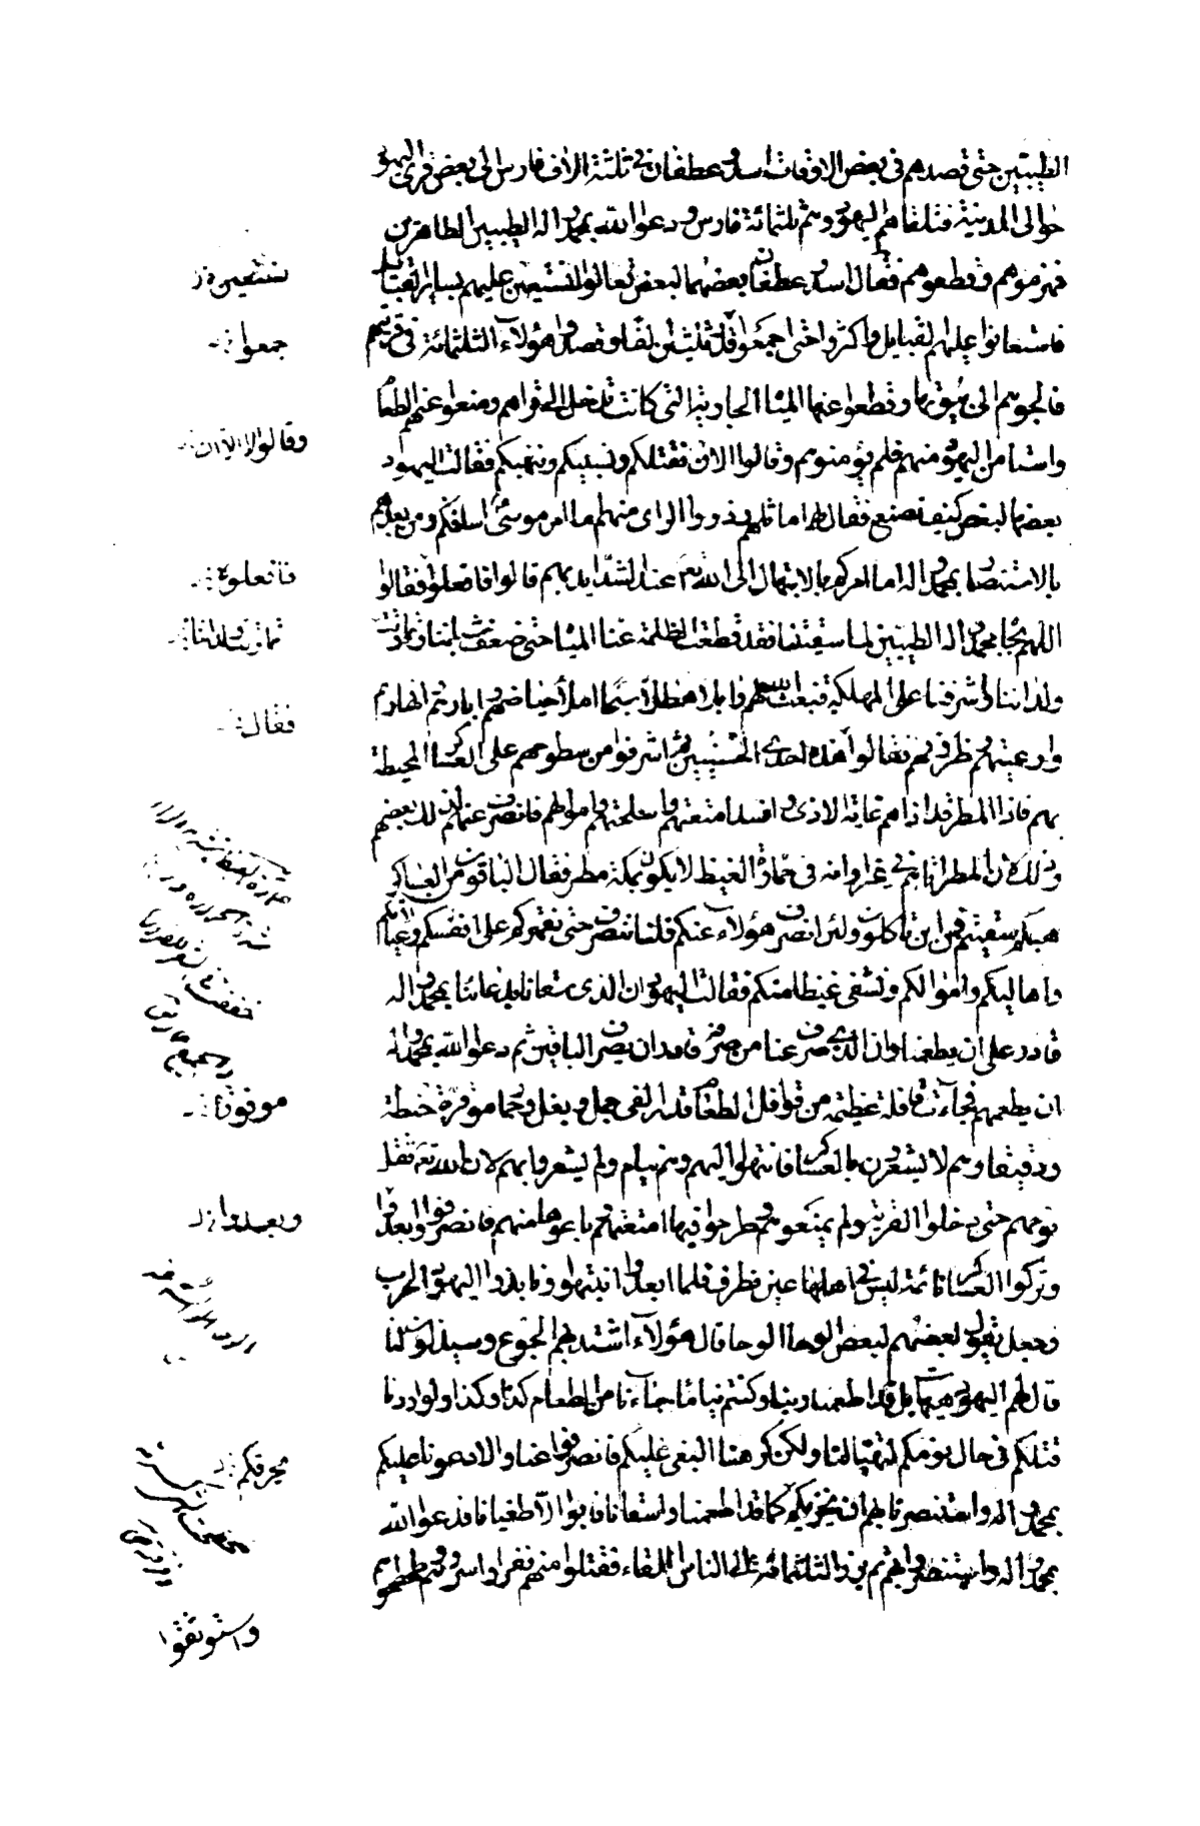 الطيبين حتى قصدهم في بعض الاوقات اسد و غطفان في ثلثة الاف فارس الى بعض قرى اليهود
حوالى المدينة فتلقاهم اليهود وهم ثلثمائة فارس و دعوا الله بمحمد و اله الطيبين الطاهرين
فهزموهم و قطعوهم فقال اسد و غطفان بعضهما لبعض تعالوا نستعين عليهم بساير القبايل
نستعين خ ل
فاستعانوا عليهم القبايل واكثروا حتى اجتمعوا قدر ثلثين الفا و قصدوا هؤلاء الثلثمائة في قريتهم
جمعوا
فالجؤهم الى بيوتها و قطعوا عنها المياه الجارية التي كانت تدخل الى قراهم و منعوا عنهم الطعام
واستامن اليهود منهم فلم يؤمنوهم و قالوا لا الا ان نقتلكم و نسبيكم و ننهبكم فقالت اليهود
وقالوا لا الا ان
بعضها لبعض كيف نصنع فقال لهم اماثلهم و ذووا الراى منهم اما امر موسى اسلافكم و من بعدهم
بالاستنصار بمحمد و اله اما امركم بالابتهال الى الله تع عند الشدايد بهم قالوا فافعلوا فقالوا
فافعلوه
اللهم بجاه محمد و اله الطيبين لما سقيتنا فقد قطعت الظلمة عنا المياه حتى ضعف شباننا و تماوتت
تماوتت ولداننا
ولداننا و اشرفنا على المهلكة فبعث الله لهم وابلا هطلا سحا املأ حياضهم و ابارهم و انهارهم
و اوعيتهم و ظروفهم فقالوا هذه احدى الحسنيين ثم اشرفوا من سطوحهم على العساكر المحيطة
فقال
بهم فاذا المطر قد اذاهم غاية الاذى و افسد امتعتهم و اسلحتهم و اموالهم فانصرف عنهم لذلك بعضهم
و ذلك ان المطر اتاهم في غير اوانه في حمارة القيظ لا يكون بمكة مطر فقال الباقون من العساكر
هبكم سقيتم فمن اين تاكلون ولئن انصرف هؤلاء عنكم فلسنا ننصرف حتى نقهركم على انفسكم و عيالاتكم
و اهاليكم و اموالكم و نشفى غيظا منكم فقالت اليهود ان الذى سقانا بدعائنا بمحمد و اله
قادر على ان يطعمنا و ان الذى صرف عنا من صرفه قادر ان يصرف الباقين ثم دعوا الله بمحمد و اله
ان يطعمهم فجاءت قافلة عظيمة من قوافل الطعام قدر الفى جمل و بغل و حمار موقرة حنطة
موقورة
و دقيقا و هم لا يشعرون بالعساكر فانتهوا اليهم و هم نيام ولم يشعروا بهم لان الله تع ثقل
نومهم حتى دخلوا القرية ولم يمنعوهم و طرحوا فيها امتعتهم و باعوها منهم فانصرفوا و ابعدوا
و بعدوا خ ل
و تركوا العساكر نائمة ليس في اهلها عين تطرف فلما ابعدوا انتبهوا و نابذوا اليهود الحرب
و جعل يقول بعضهم لبعض الوحا الوحا قال هؤلاء اشتد بهم الجوع و سيذلون لنا
قال لهم اليهود هيهات بل قد اطعمنا ربنا و كنتم نياما جاءنا من الطعام كذا و كذا ولو اردنا
قتلكم في حال نومكم لتهيا لنا ولكن كرهنا البغى عليكم فانصرفوا عنا و الا دعونا عليكم
بمحمد و اله و استنصرنا بهم ان يخزيكم كما قد اطعمنا و اسقانا فابوا الا طغيانا فدعوا الله
بمحمد و اله و استنصروا بهم ثم برز الثلثمائة الى الناس للقاء فقتلوا منهم نفرا و اسروهم و طحطحوهم
واستوثقوا